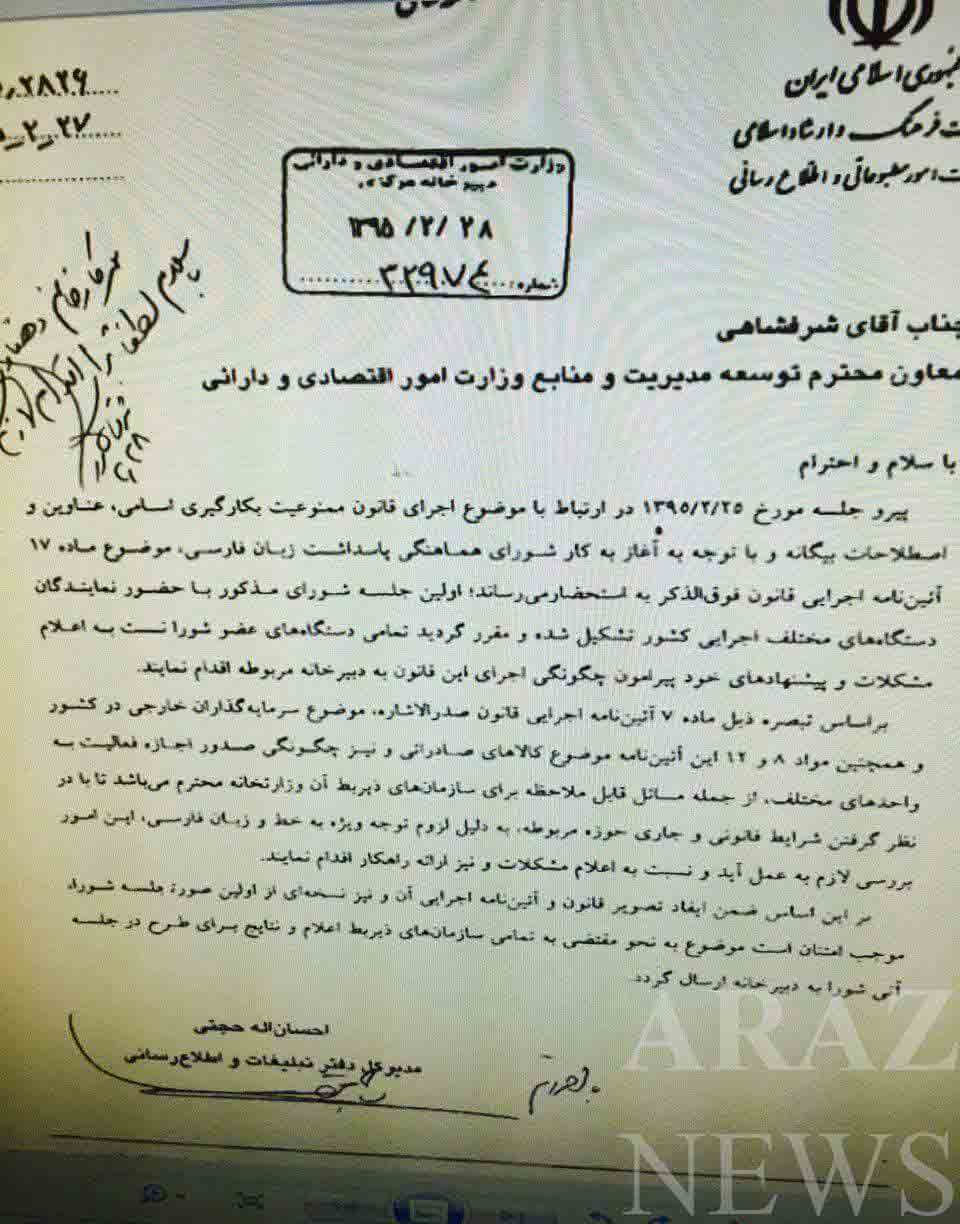 جمهوری اسلامی ایران
ت فرهنگ و ارشاد اسلامی
ت امور مطبوعاتی و اطلاع رسانی
۲۸۲۶
۲-۲۷
وزارت امور اقتصادی و دارائی
دبیرخانه مرکزی
۱۳۹۵/۲/۲۸
شماره: ۳۳۹۷۴
جناب آقای شرفشاهی
معاون محترم توسعه مدیریت و منابع وزارت امور اقتصادی و دارائی
با سلام و احترام
پیرو جلسه مورخ ۱۳۹۵/۲/۲۵ در ارتباط با موضوع اجرای قانون ممنوعیت بکارگیری اسامی، عناوین و
اصطلاحات بیگانه و با توجه به آغاز به کار شورای هماهنگی پاسداشت زبان فارسی، موضوع ماده ۱۷
آئین‌نامه اجرایی قانون فوق‌الذکر به استحضار می‌رساند؛ اولین جلسه شورای مذکور با حضور نمایندگان
دستگاه‌های مختلف اجرایی کشور تشکیل شده و مقرر گردید تمامی دستگاه‌های عضو شورا نسبت به اعلام
مشکلات و پیشنهادهای خود پیرامون چگونگی اجرای این قانون به دبیرخانه مربوطه اقدام نمایند.
براساس تبصره ذیل ماده ۷ آئین‌نامه اجرایی قانون صدرالاشاره، موضوع سرمایه‌گذاران خارجی در کشور
و همچنین مواد ۸ و ۱۲ این آئین‌نامه موضوع کالاهای صادراتی و نیز چگونگی صدور اجازه فعالیت به
واحدهای مختلف، از جمله مسائل قابل ملاحظه برای سازمان‌های ذیربط آن وزارتخانه محترم می‌باشد تا با در
نظر گرفتن شرایط قانونی و جاری حوزه مربوطه، به دلیل لزوم توجه ویژه به خط و زبان فارسی، این امور
بررسی لازم به عمل آید و نسبت به اعلام مشکلات و نیز ارائه راهکار اقدام نمایند.
بر این اساس ضمن ایفاد تصویر قانون و آئین‌نامه اجرایی آن و نیز نسخه‌ای از اولین صورة جلسه شورا،
موجب امتنان است موضوع به نحو مقتضی به تمامی سازمان‌های ذیربط اعلام و نتایج برای طرح در جلسه
آتی شورا به دبیرخانه ارسال گردد.
احسان‌اله حجتی
مدیرکل دفتر تبلیغات و اطلاع‌رسانی
ARAZ
NEWS